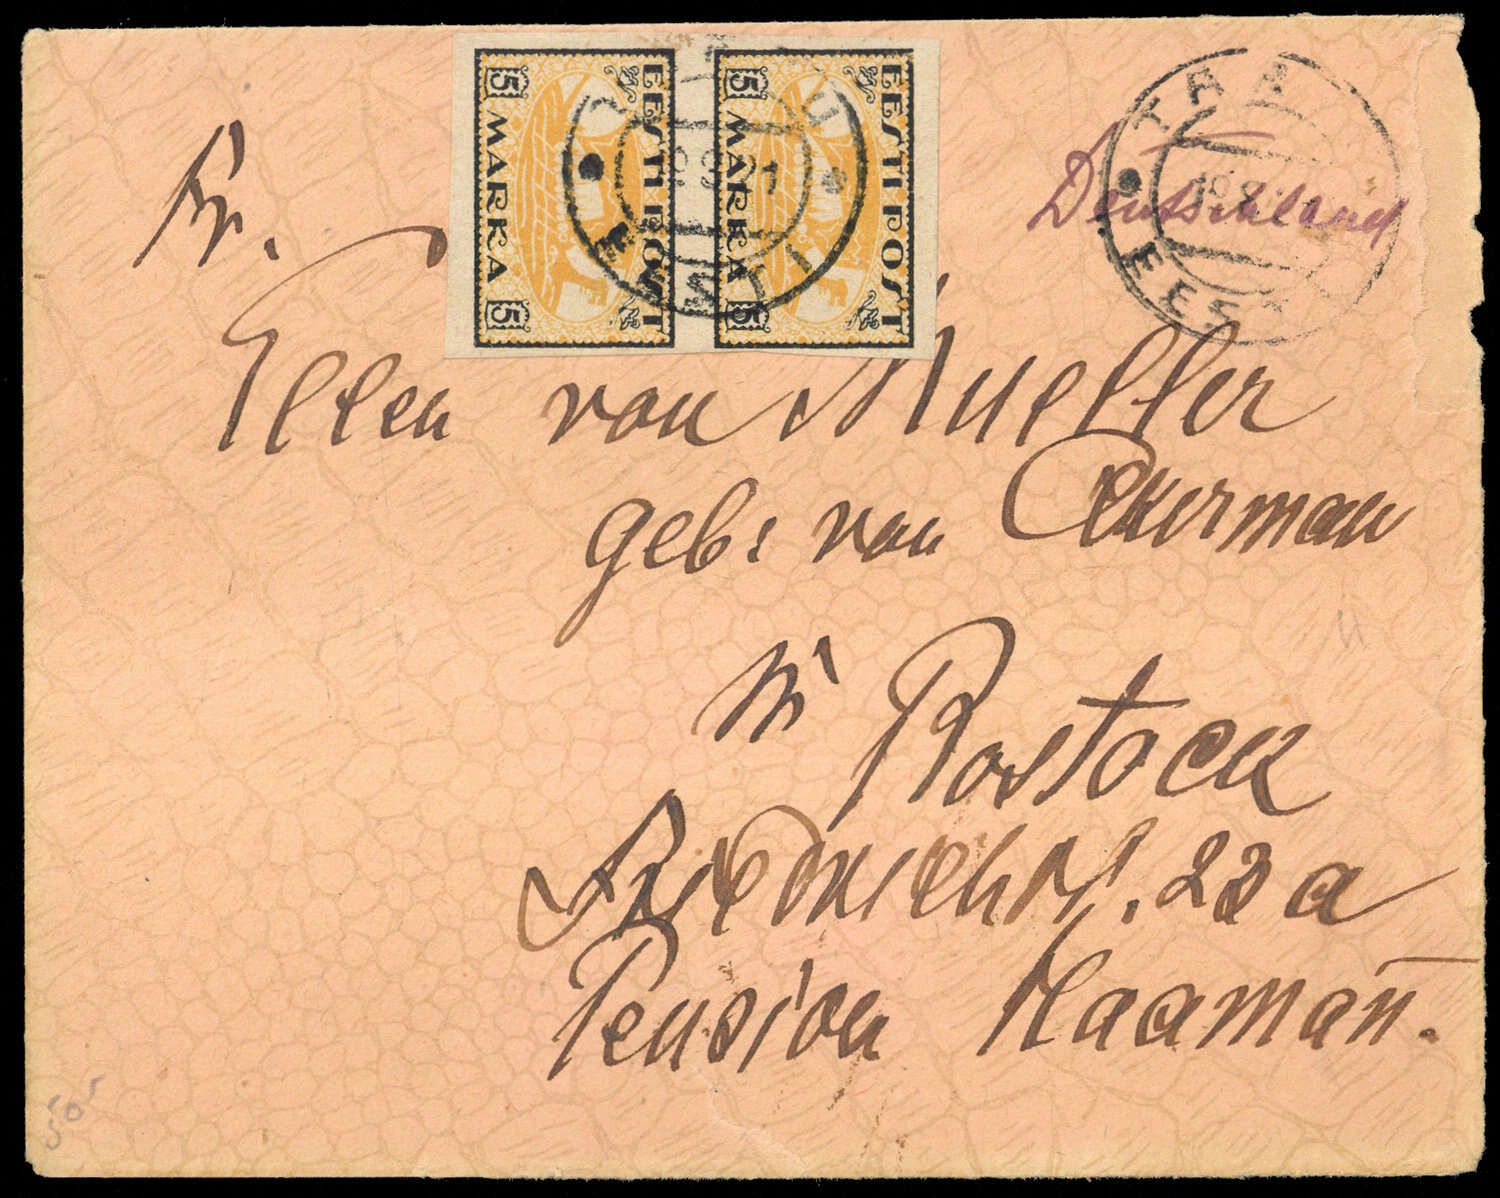 EESTI POST
5 MARKA 5
EESTI POST
5 MARKA 5
TARTU
9 9 21
EESTI
TAR
EESTI
Deutschland
Fr.
Ellen von Mueller
geb: von Ackerman
in Rostock
23 a
Pension Haaman̄.
50